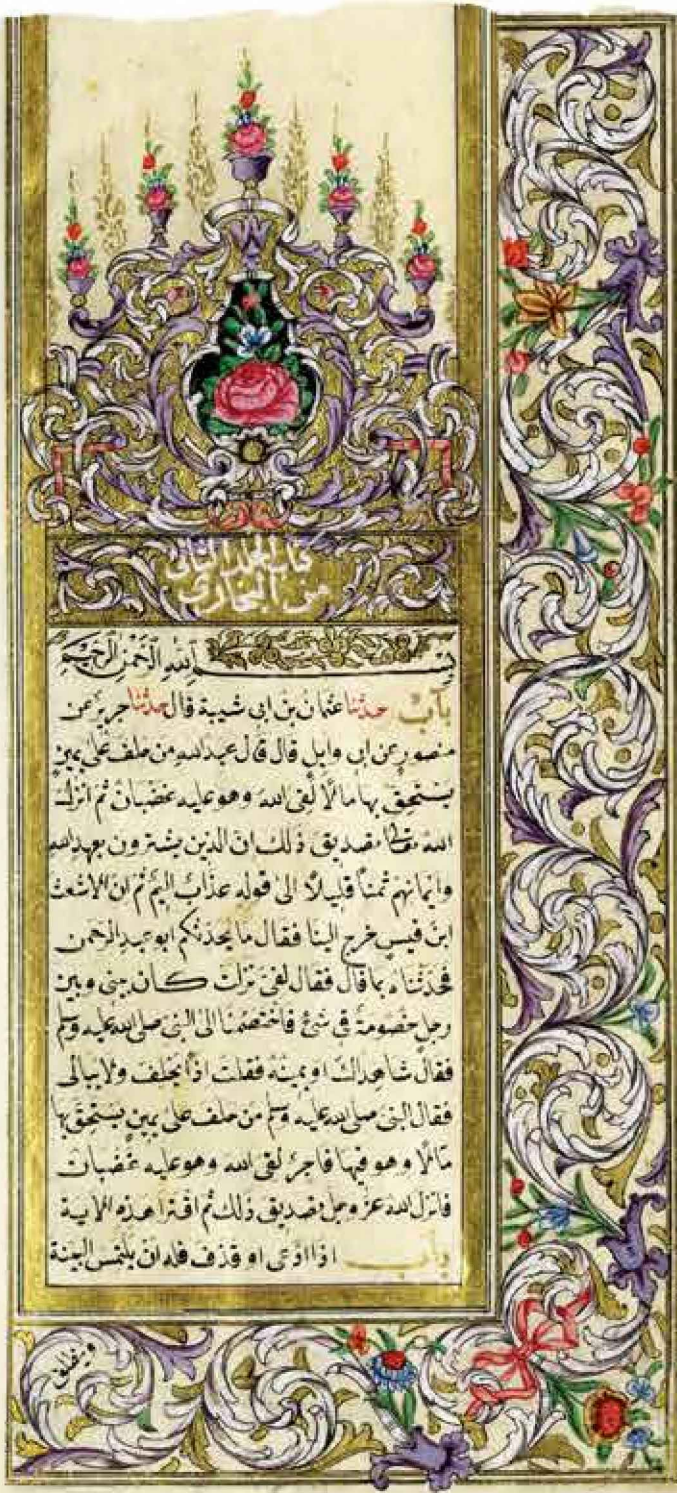 كتاب المجلد الثاني
من البخاري
بسم الله الرحمن الرحيم
باب حدثنا عثمان بن ابى شيبة قال حدثنا جرير عن
منصور عن ابى وايل قال قال عبد الله من حلف على يمين
يستحق بها مالا لقى الله وهو عليه غضبان ثم انزل
الله تعالى تصديق ذلك ان الذين يشترون بعهد الله
وايمانهم ثمنا قليلا الى قوله عذاب اليم ثم ان الاشعث
ابن قيس خرج الينا فقال ما يحدثكم ابو عبد الرحمن
فحدثناه بما قال فقال لفى نزلت كان بينى وبين
رجل خصومة فى شئ فاختصمنا الى النبى صلى الله عليه وسلم
فقال شاهداك او يمينه فقلت اذا يحلف ولا يبالى
فقال النبى صلى الله عليه وسلم من حلف على يمين يستحق بها
مالا وهو فيها فاجر لقى الله وهو عليه غضبان
فانزل الله عز وجل تصديق ذلك ثم اقترا هذه الاية
باب اذا ادعى او قذف فله ان يلتمس البينة
وينطلق